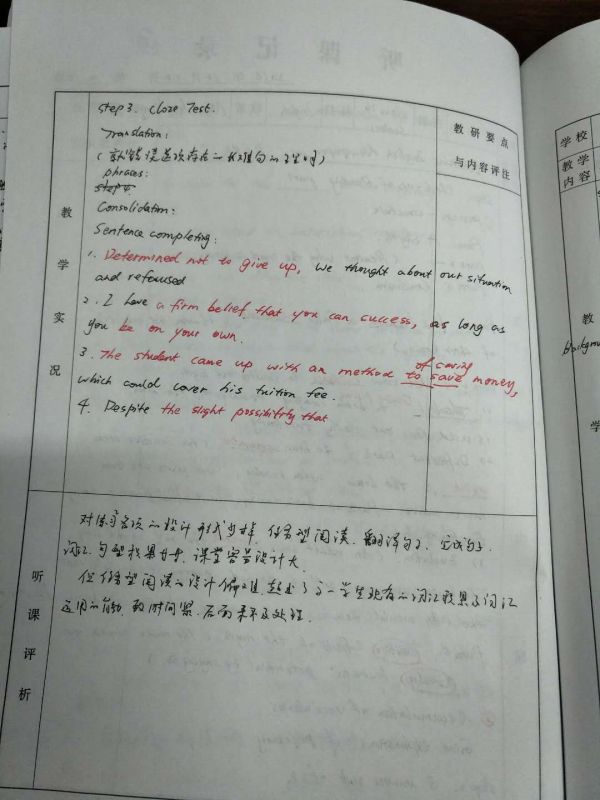 听课记录
step 3. Cloze Test.
Translation:
phrases:
step 4
Consolidation:
Sentence completing:
1. Determined not to give up, we thought about our situation
and refocused
2. I have a firm belief that you can success, as long as
you be on your own.
of saving
3. The student came up with an method to save money,
which could cover his tuition fee.
4. Despite the slight possibility that
教学实况
教研要点
与内容评注
对练习各项的设计形式多样,任务型阅读、翻译句子、完成句子,
词汇、句型积累丰富,课堂容量设计大
但任务型阅读的设计偏难,超出了高一学生现有的词汇积累及词汇
运用的能力,致时间紧,后面来不及处理.
听课评析
学校
教学
内容
教
学